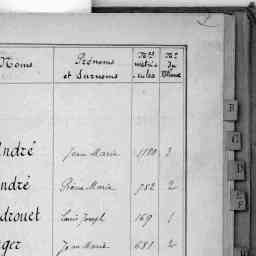 Noms Prénoms et Surnoms Nos matricules No du Volume
André Jean Marie 1180 3
André Pierre Marie 752 2
drouet Louis Joseph 169 1
ger Jean Marie 681 2
B
C
D
E
F